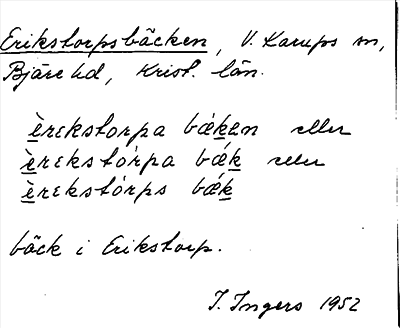 Erikstorpsbäcken, V. Karups sn,
Bjäre hd, Krist. län.
è̱rɪkstorpa bǽḵen eller
è̱rɪkstórpa bǽḵ eller
è̱rɪkstórps bǽḵ
bäck i Erikstorp.
I. Ingers 1952